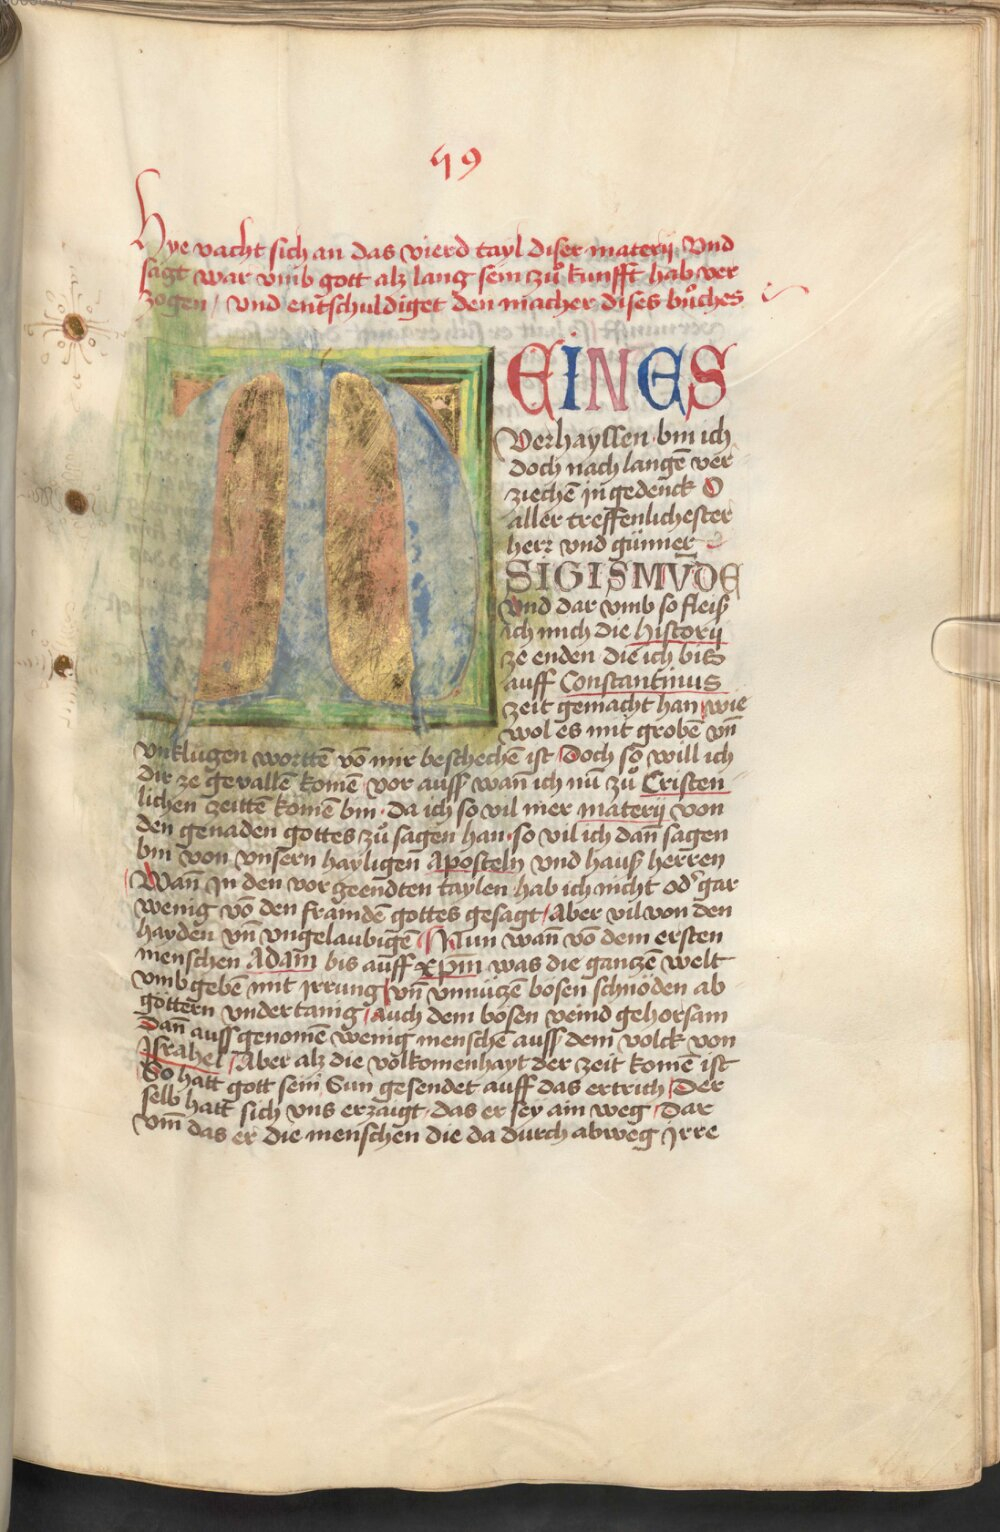 59
Hye vacht sich an das vierd tayl diser materij Vnd
sagt war vmb gott alz lang sein zuͦ kunfft hab ver
zogen / vnd entschuldiget den macher dises buͦches
MEINES
Verhayssen · bin ich
doch nach langē ver
ziechē in gedenck O
aller treffenlichester
herr vnd günner
SIGISMVDE
Vnd dar vmb so fleiß
ich mich die historij
ze enden · die ich bis
auff Constantinus
zeit gemacht han / wie
wol es mit grobē vn̄
vnklugen worttē vō mir beschechē ist / Doch so will ich
dir ze gevallē komē · vor auss wan̄ ich nu zuͦ Cristen
lichen zeittē komē bin · da ich so vil mer materij von
den genaden gottes zuͦ sagen han · so vil ich dan̄ sagen
bin von vnsern hayligen Aposteln vnd hauß herren
Wan̄ In den vor geendten taylen hab ich nicht od' gar
wenig vō den framdē gottes gesagt / Aber vil von den
hayden vn̄ vngelaubigē / Nun wan̄ vō dem ersten
menschen Adam bis auff xp̄m was die gantzē welt
vmb gebē mit Irrung / vn̄ vnnützē bosen schnoden ab
göttern vndertanig / auch dem bosen veind gehorsam
Dan̄ auss genomē wenig menschē auss dem volck von
Israhel / Aber alz die volkomenhayt der zeit komē ist
So hatt gott sein Sun gesendet auff das ertrich / Der
selb hatt sich vns erzaigt · das er sey ain weg / Dar
vm̄ das er die menschen die da durch abweg Irre